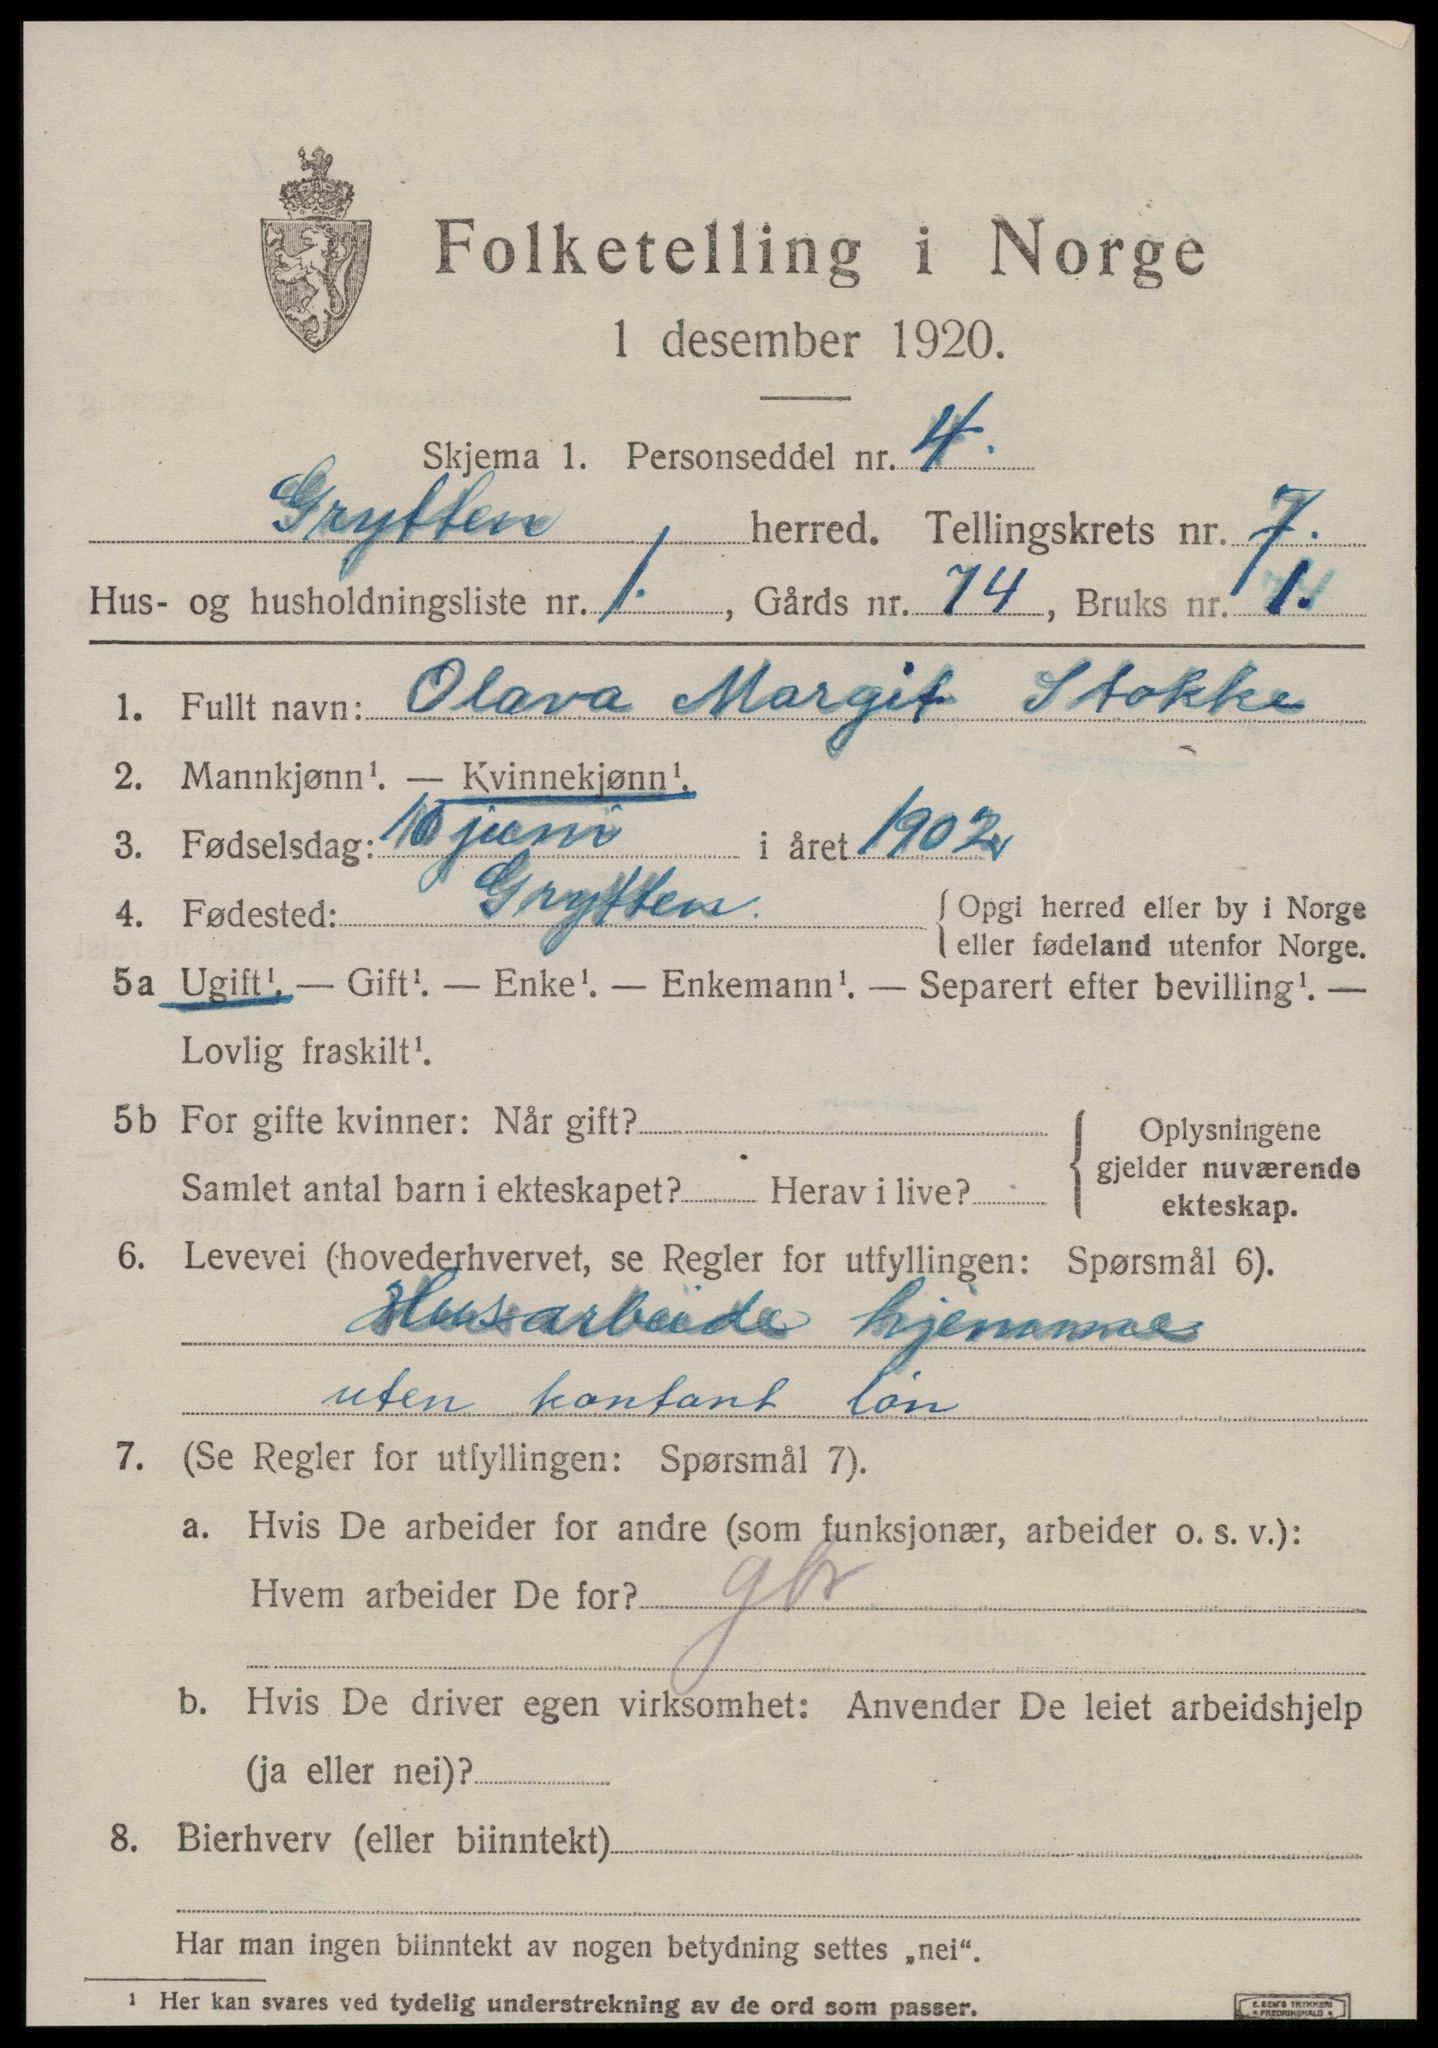 Folketelling i Norge
1 desember 1920.
Skjema 1. Personseddel nr. 4.
Grytten herred. Tellingskrets nr. 7.
Hus- og husholdningsliste nr. 1., Gårds nr. 74, Bruks nr. 1.
1. Fullt navn: Olava Margit Stokke
2. Mannkjønn¹. — Kvinnekjønn¹.
3. Fødselsdag: juni i året 1902
4. Fødested: Grytten. { Opgi herred eller by i Norge
eller fødeland utenfor Norge.
5a Ugift¹. — Gift¹. — Enke¹. — Enkemann¹. — Separert efter bevilling¹. —
Lovlig fraskilt¹.
5b For gifte kvinner: Når gift? Oplysningene
gjelder nuværende
Samlet antal barn i ekteskapet? Herav i live?
ekteskap.
6. Levevei (hovederhvervet, se Regler for utfyllingen: Spørsmål 6).
Husarbeide hjemme
uten kontant løn
7. (Se Regler for utfyllingen: Spørsmål 7).
a. Hvis De arbeider for andre (som funksjonær, arbeider o. s. v.):
Hvem arbeider De for? gbr
b. Hvis De driver egen virksomhet: Anvender De leiet arbeidshjelp
(ja eller nei)?
8. Bierhverv (eller biinntekt)
Har man ingen biinntekt av nogen betydning settes „nei“.
¹ Her kan svares ved tydelig understrekning av de ord som passer.
E. SEM'S TRYKKERI
FREDRIKSHALD